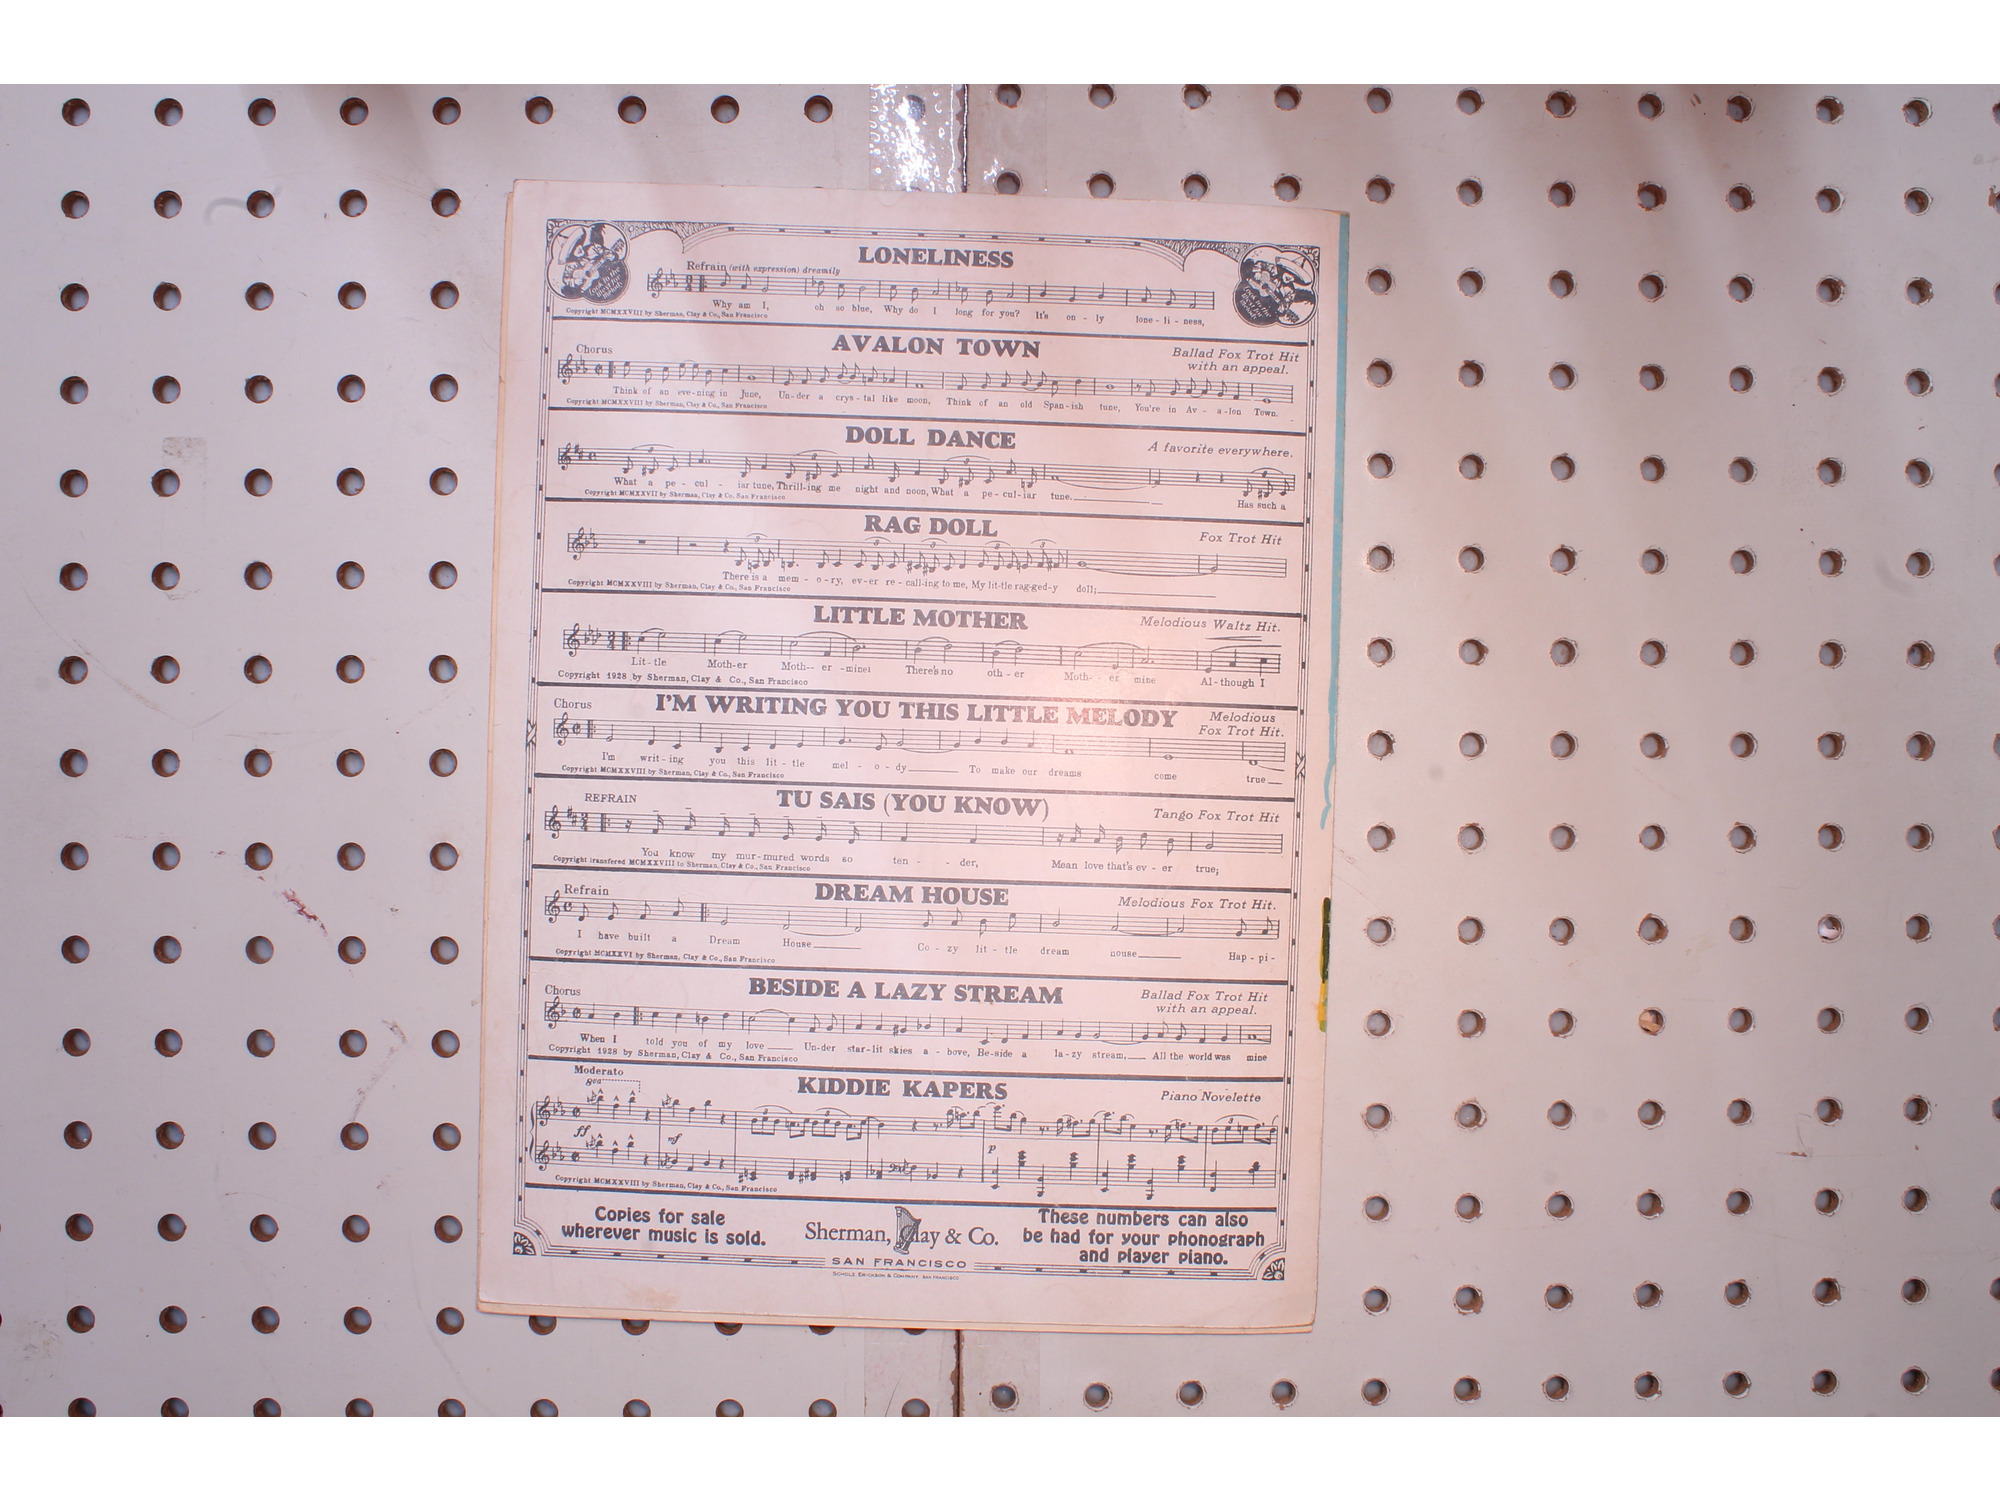 LONELINESS
Refrain (with expression) dreamily
Why am I, oh so blue, Why do I long for you? It's on - ly lone - li - ness,
Copyright MCMXXVIII by Sherman, Clay & Co., San Francisco
AVALON TOWN
Chorus
Ballad Fox Trot Hit
with an appeal.
Think of an eve-ning in June, Un-der a crys-tal like moon, Think of an old Span-ish tune, You're in Av - a-lon Town.
Copyright MCMXXVIII by Sherman, Clay & Co., San Francisco
DOLL DANCE
A favorite everywhere.
What a pe - cul - iar tune, Thrill-ing me night and noon, What a pe-cul-iar tune. Has such a
Copyright MCMXXVII by Sherman, Clay & Co. San Francisco
RAG DOLL
Fox Trot Hit
There is a mem - o - ry, ev-er re - call-ing to me, My lit-tle rag-ged-y doll;
Copyright MCMXXVIII by Sherman, Clay & Co., San Francisco
LITTLE MOTHER
Melodious Waltz Hit.
Lit-tle Moth-er Moth-- er -mine! There's no oth-er Moth- - er mine Al-though I
Copyright 1928 by Sherman, Clay & Co., San Francisco
I'M WRITING YOU THIS LITTLE MELODY
Chorus
Melodious
Fox Trot Hit.
I'm writ-ing you this lit-tle mel - o - dy To make our dreams come true
Copyright MCMXXVIII by Sherman, Clay & Co., San Francisco
TU SAIS (YOU KNOW)
REFRAIN
Tango Fox Trot Hit
You know my mur-mured words so ten - - der, Mean love that's ev - er true;
Copyright transfered MCMXXVIII to Sherman, Clay & Co., San Francisco
DREAM HOUSE
Refrain
Melodious Fox Trot Hit.
I have built a Dream House Co - zy lit - tle dream house Hap - pi -
Copyright MCMXXVI by Sherman, Clay & Co., San Francisco
BESIDE A LAZY STREAM
Chorus
Ballad Fox Trot Hit
with an appeal.
When I told you of my love Un-der star-lit skies a - bove, Be-side a la-zy stream, All the world was mine
Copyright 1928 by Sherman, Clay & Co., San Francisco
KIDDIE KAPERS
Moderato
8va
Piano Novelette
ff mf p
Copyright MCMXXVIII by Sherman, Clay & Co., San Francisco
Copies for sale
wherever music is sold.
Sherman, Clay & Co.
SAN FRANCISCO
These numbers can also
be had for your phonograph
and player piano.
SCHOLZ, ERICKSON & COMPANY, SAN FRANCISCO